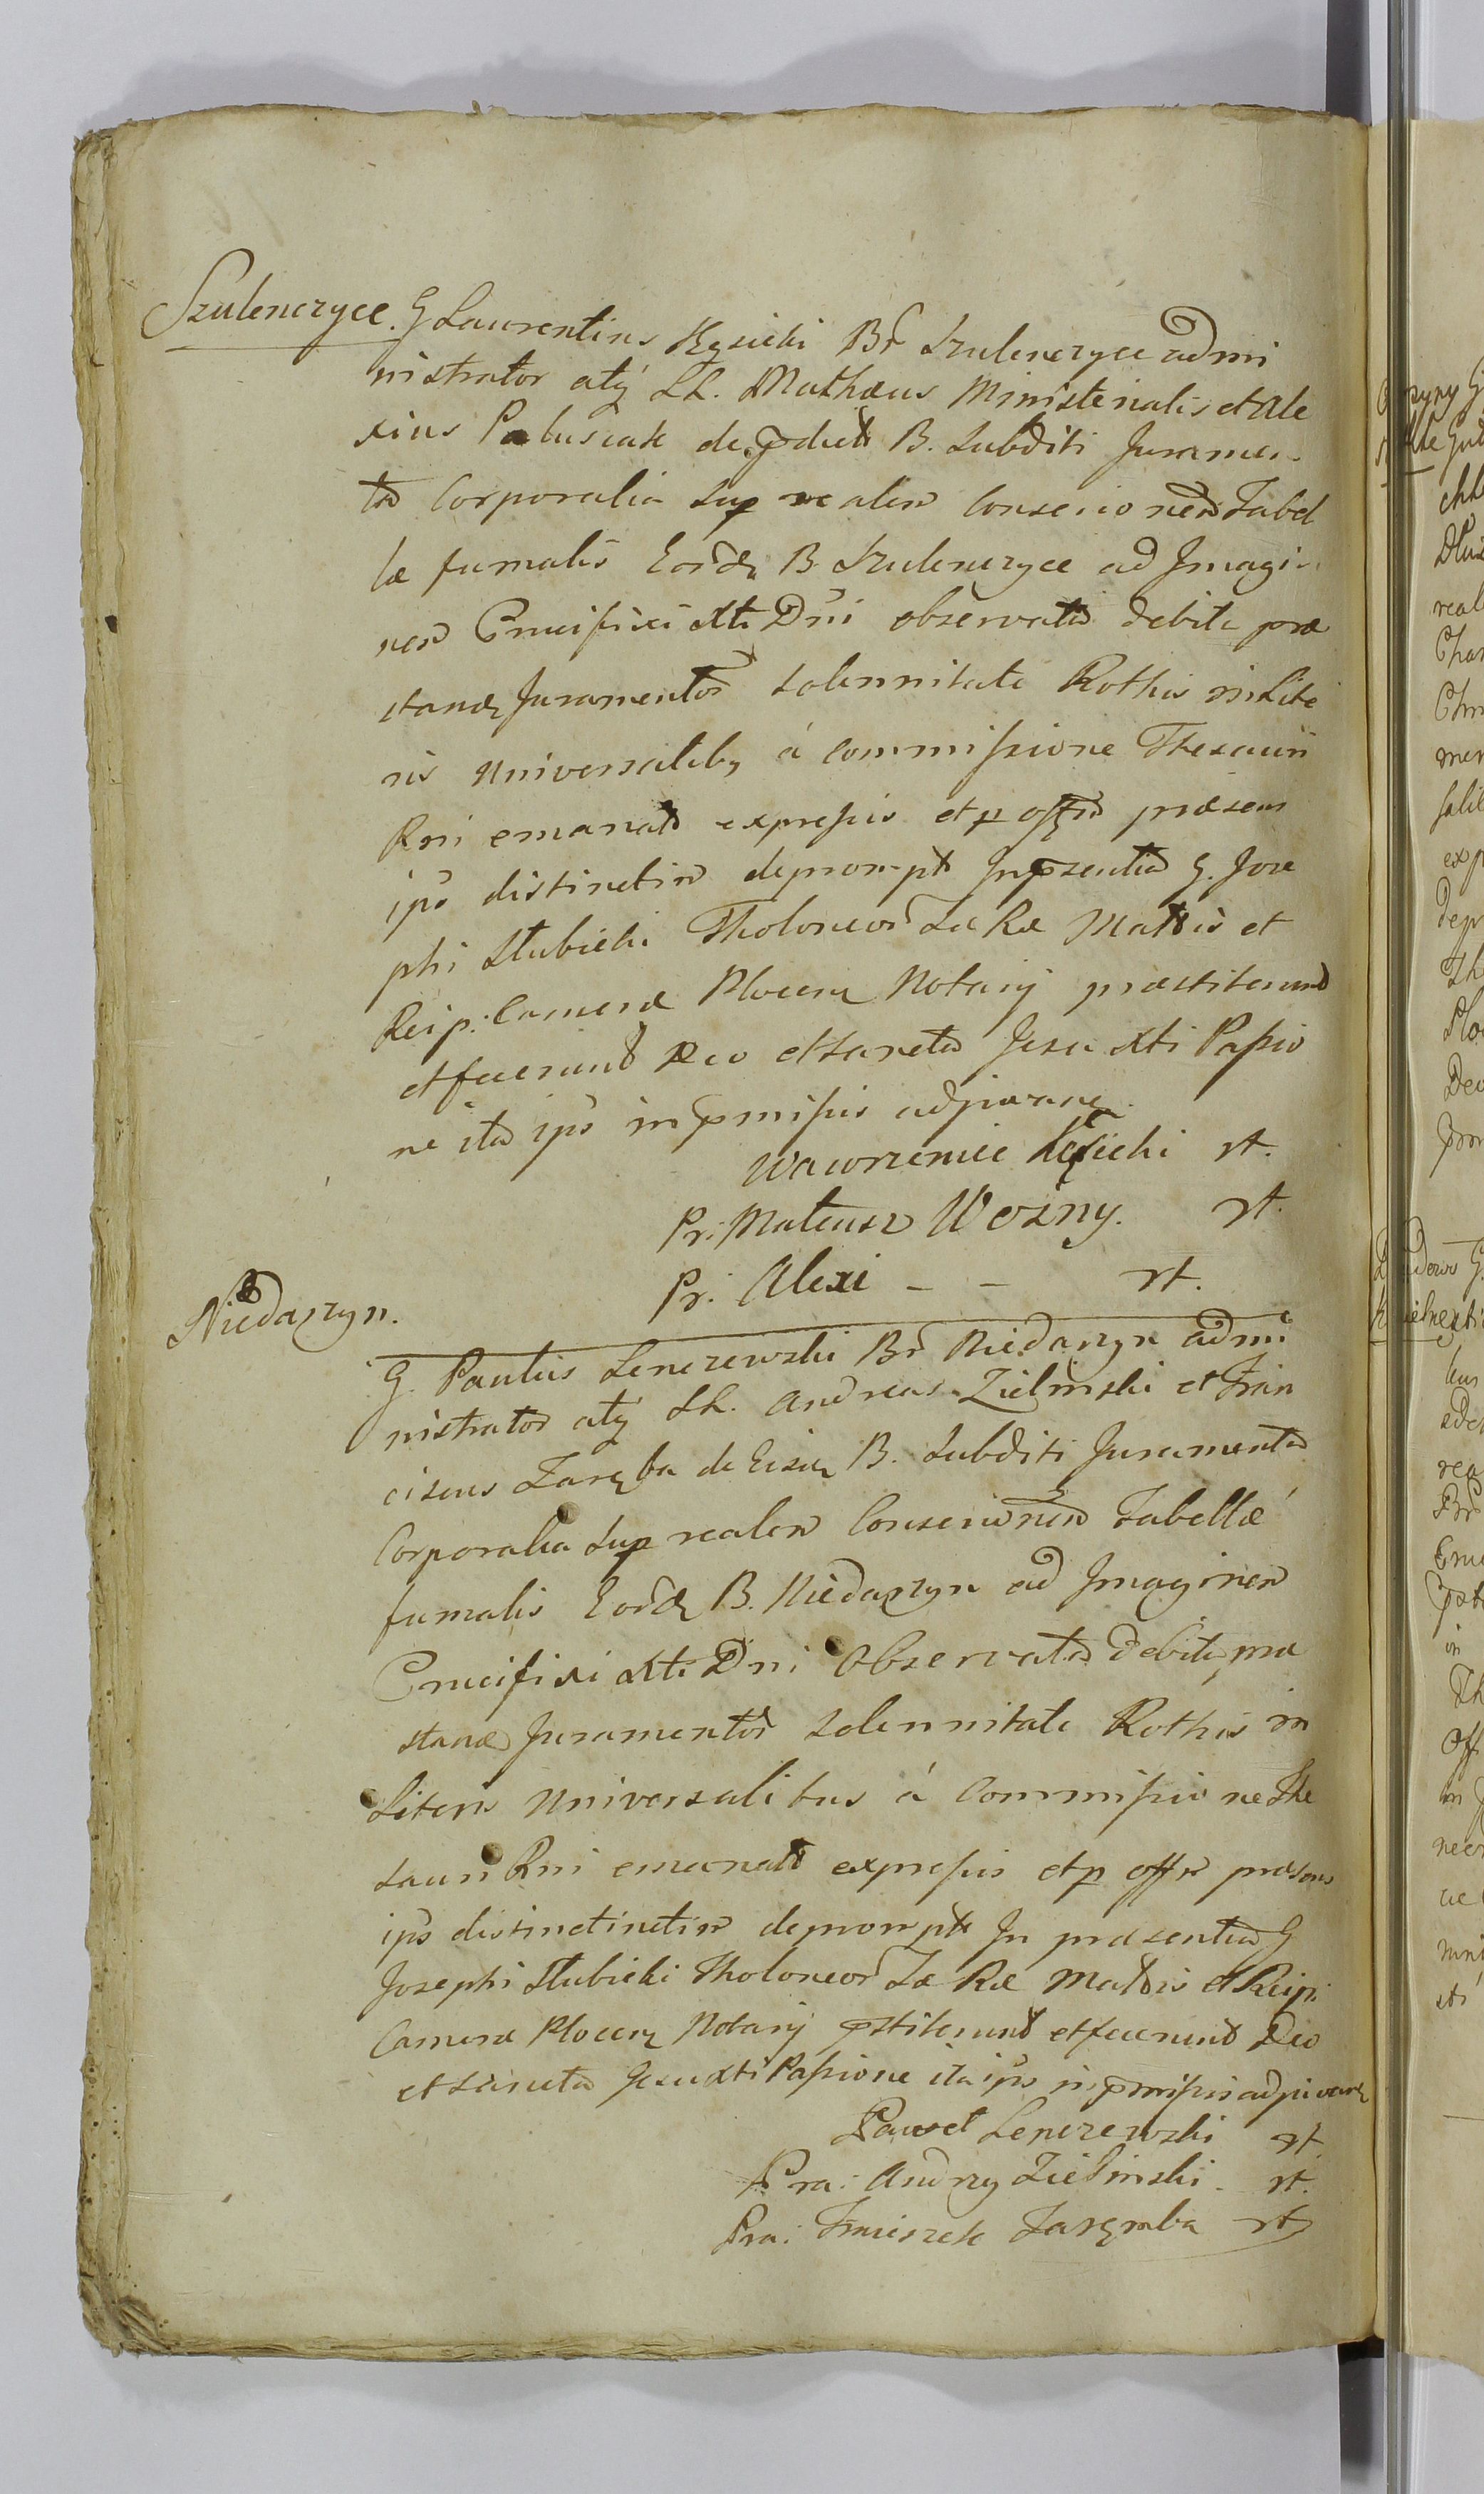 Szulenczyce. G Laurentius Kęsicki Br Szulenczyce admi
nistrator atq LL. Mathæus Ministerialis et Ale
xius Palusiak de pdict B. Subditi Juramen
ta Corporalia sup realem Conscrionem Tabel
læ fumalis Eord B Szulenczyce ad Imagi-
nem Crucifixi Xti Dni observata debita præ
stand Juramentor Solennitate Rothis in Lite
ris Universalib, à Commissione Thesauri
Rni emanat expressis et p offm præsens
ips distinctim deprompt In psentia G. Jose
phi Słubicki Theloneor Sæ Ræ Mattis et
Reip: Cameræ Plocen Notarij præstiterunt
et fecerunt Deo et Sancta Jesu Xti Passio
ne ita ips in pmissis adjuvan
Wawrzeniec Kęsicki rt.
Pr: Mateusz Wozny. rt.
Pr: Alexi - - rt.
Niedarzyn.
G. Paulus Lenczewski Br Niedarzyn admi
nistrator atq LL. Andreas Zielinski et Fran
ciscus Zaręba de Eisd B. Subditi Juramenta
Corporalia Sup realem Conscrionem Tabellæ
fumalis Eord B. Niedarzyn ad Imaginem
Crucifixi Xti Dni Observata Debita, præ
stand Juramentor Solennitate Rothis in
Literis Universalibus à Commissione The
sauri Rni emanat expressis et p offm præsens
ips distinctinctim deprompt In præsentia G
Josephi Słubicki Theloneor Sæ Ræ Mattis et Reip:
Cameræ Plocen Notarij pstiterunt et fecerunt Deo
et Sancta Jesu Xti Passione ita ips in pmissis adjuvan
Paweł Lenczewski rt.
Pra: Andrzy Zielinski. rt.
Pra: Franciszek Zaręmba rt